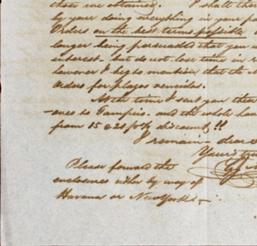 else me obtained. I shall ther
by your doing everything in your po
Orders on the best terms possible
longer being persuaded that you
interest. but do not lose time in r
however I beg to mention that the
orders for places remides.
At the time I sent you ther
ance to Tampico. and the whole ha
from 15 a 20 pct discount!!
I remain dear
Yours tru
Please forward the
enclosures either by way of
Havana or New York -